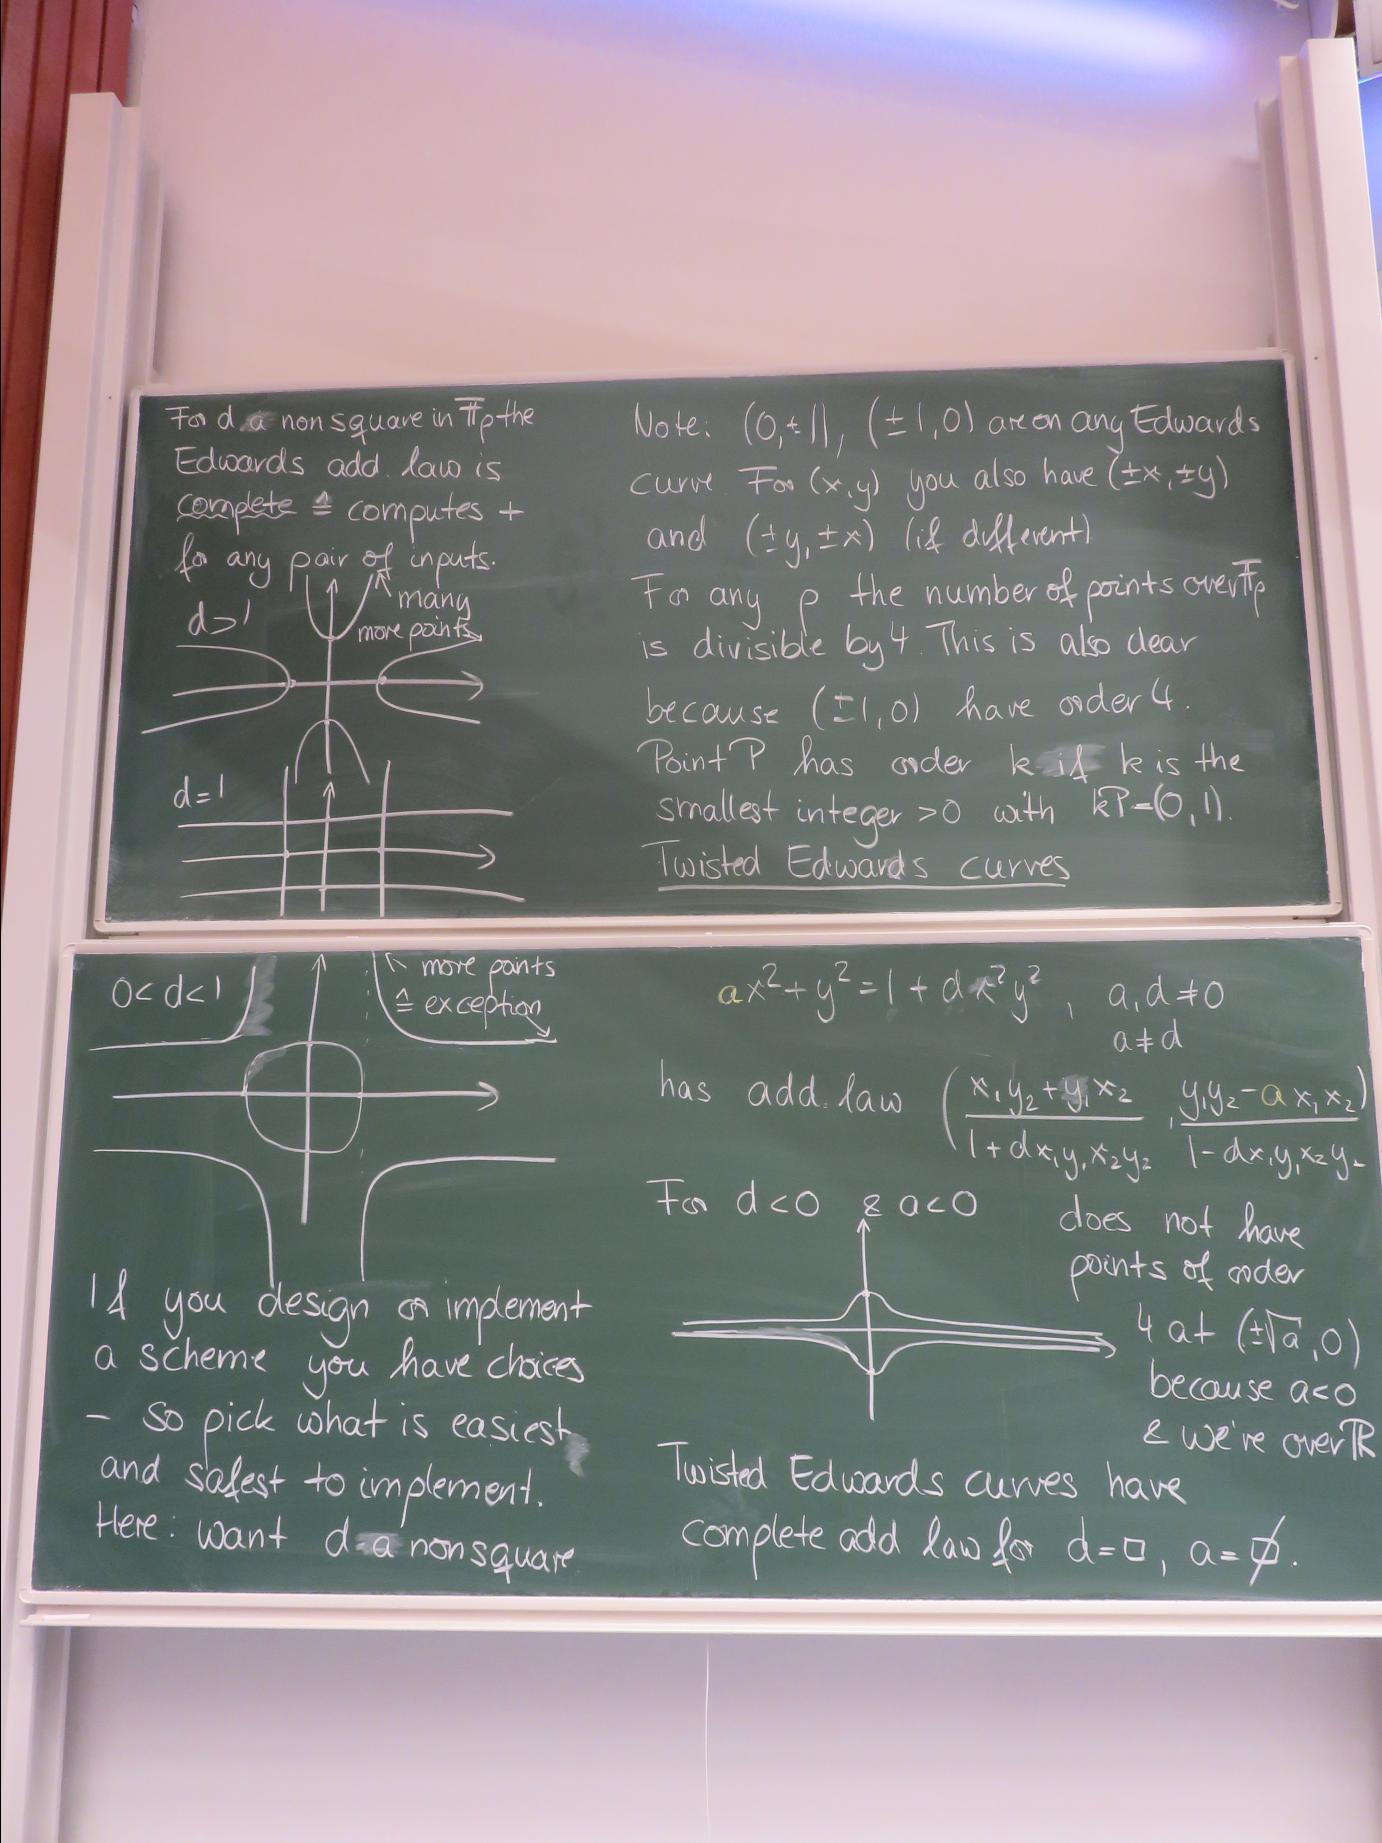 For d a nonsquare in 𝔽p the
Edwards add. law is
complete ≙ computes +
for any pair of inputs.
d>1
many
more points
d=1
Note: (0,±1), (±1,0) are on any Edwards
curve For (x,y) you also have (±x,±y)
and (±y,±x) (if different)
For any p the number of points over 𝔽p
is divisible by 4. This is also clear
because (±1,0) have order 4.
Point P has order k if k is the
smallest integer >0 with kP=(0,1).
Twisted Edwards curves
0<d<1
more points
≙ exception
If you design or implement
a scheme you have choices
– so pick what is easiest
and safest to implement.
Here: want d a nonsquare
ax²+y²=1+dx²y², a,d≠0
a≠d
has add. law ((x₁y₂+y₁x₂)/(1+dx₁y₁x₂y₂), (y₁y₂-ax₁x₂)/(1-dx₁y₁x₂y₂))
For d<0 & a<0
does not have
points of order
4 at (±√a,0)
because a<0
& we're over ℝ
Twisted Edwards curves have
complete add law for d=□, a=□̸.